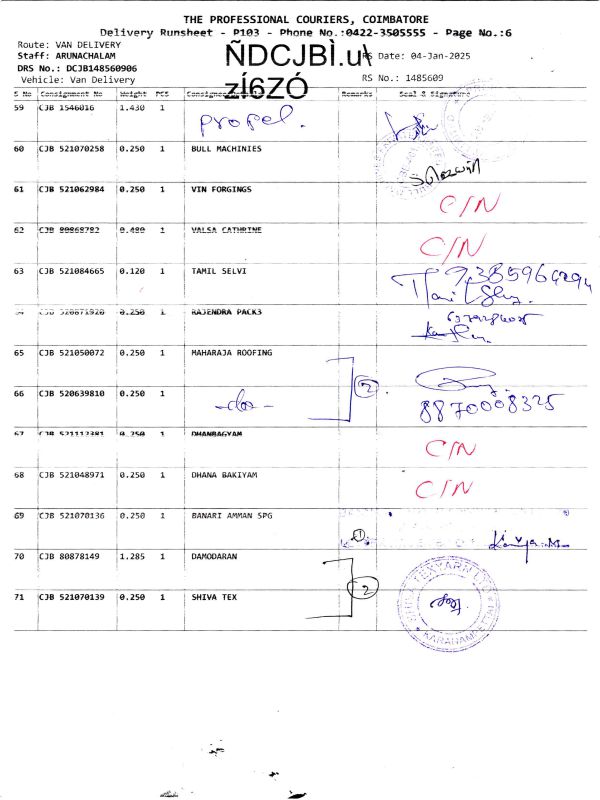 THE PROFESSIONAL COURIERS, COIMBATORE
Delivery Runsheet - P103 - Phone No.:0422-3505555 - Page No.:6
Route: VAN DELIVERY
Staff: ARUNACHALAM
ÑDCJBÌ.u\
RS Date: 04-Jan-2025
DRS No.: DCJB148560906
Vehicle: Van Delivery
zÍ6ZÓ
RS No.: 1485609
S No Consignment No Weight PCS Consignee Remarks Seal & Signature
59 CJB 1546016 1.430 1 propel.
60 CJB 521070258 0.250 1 BULL MACHINIES
61 CJB 521062984 0.250 1 VIN FORGINGS C/N
62 CJB 80868782 0.480 1 VALSA CATHRINE C/N
63 CJB 521084665 0.120 1 TAMIL SELVI
64 CJB 520871920 0.250 1 RAJENDRA PACKS
65 CJB 521050072 0.250 1 MAHARAJA ROOFING
66 CJB 520639810 1 -do- 2 8870008325
67 CJB 521112381 0.250 1 DHANBAGYAM C/N
68 CJB 521048971 0.250 1 DHANA BAKIYAM C/N
69 CJB 521070136 0.250 1 BANARI AMMAN SPG
70 CJB 80878149 1.285 1 DAMODARAN
71 CJB 521070139 0.250 1 SHIVA TEX 2